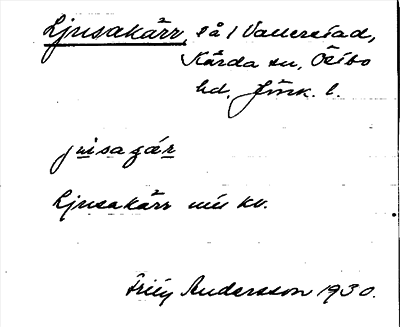 Ljusakärr, så i Vallerstad,
Kärda sn, Östbo
hd, Jönk. l.
jusagär
Ljusakärr
Andersson 1930.